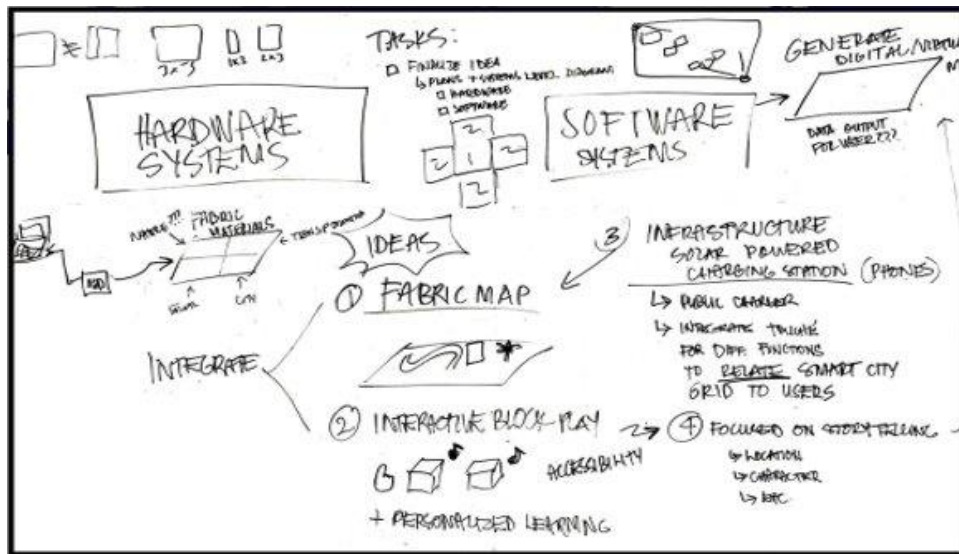 3x3
1x3
2x3
HARDWARE
SYSTEMS
TASKS:
FINALIZE IDEA
↳ PLANS + SYSTEMS LEVEL DIAGRAMS
HARDWARE
SOFTWARE
2
2 1 2
2
SOFTWARE
SYSTEMS
GENERATE
DIGITAL/VIRTUAL
DATA OUTPUT
FOR USER???
FABRIC
MATERIALS
IDEAS
INTEGRATE
① FABRIC MAP
② INTERACTIVE BLOCK PLAY
ACCESSIBILITY
+ PERSONALIZED LEARNING
③ INFRASTRUCTURE
SOLAR POWERED
CHARGING STATION (PHONES)
↳ PUBLIC CHARGER
↳ INTEGRATE
FOR DIFF. FUNCTIONS
TO RELATE SMART CITY
GRID TO USERS
④ FOCUSED ON STORYTELLING
↳ LOCATION
↳ CHARACTER
↳ ETC